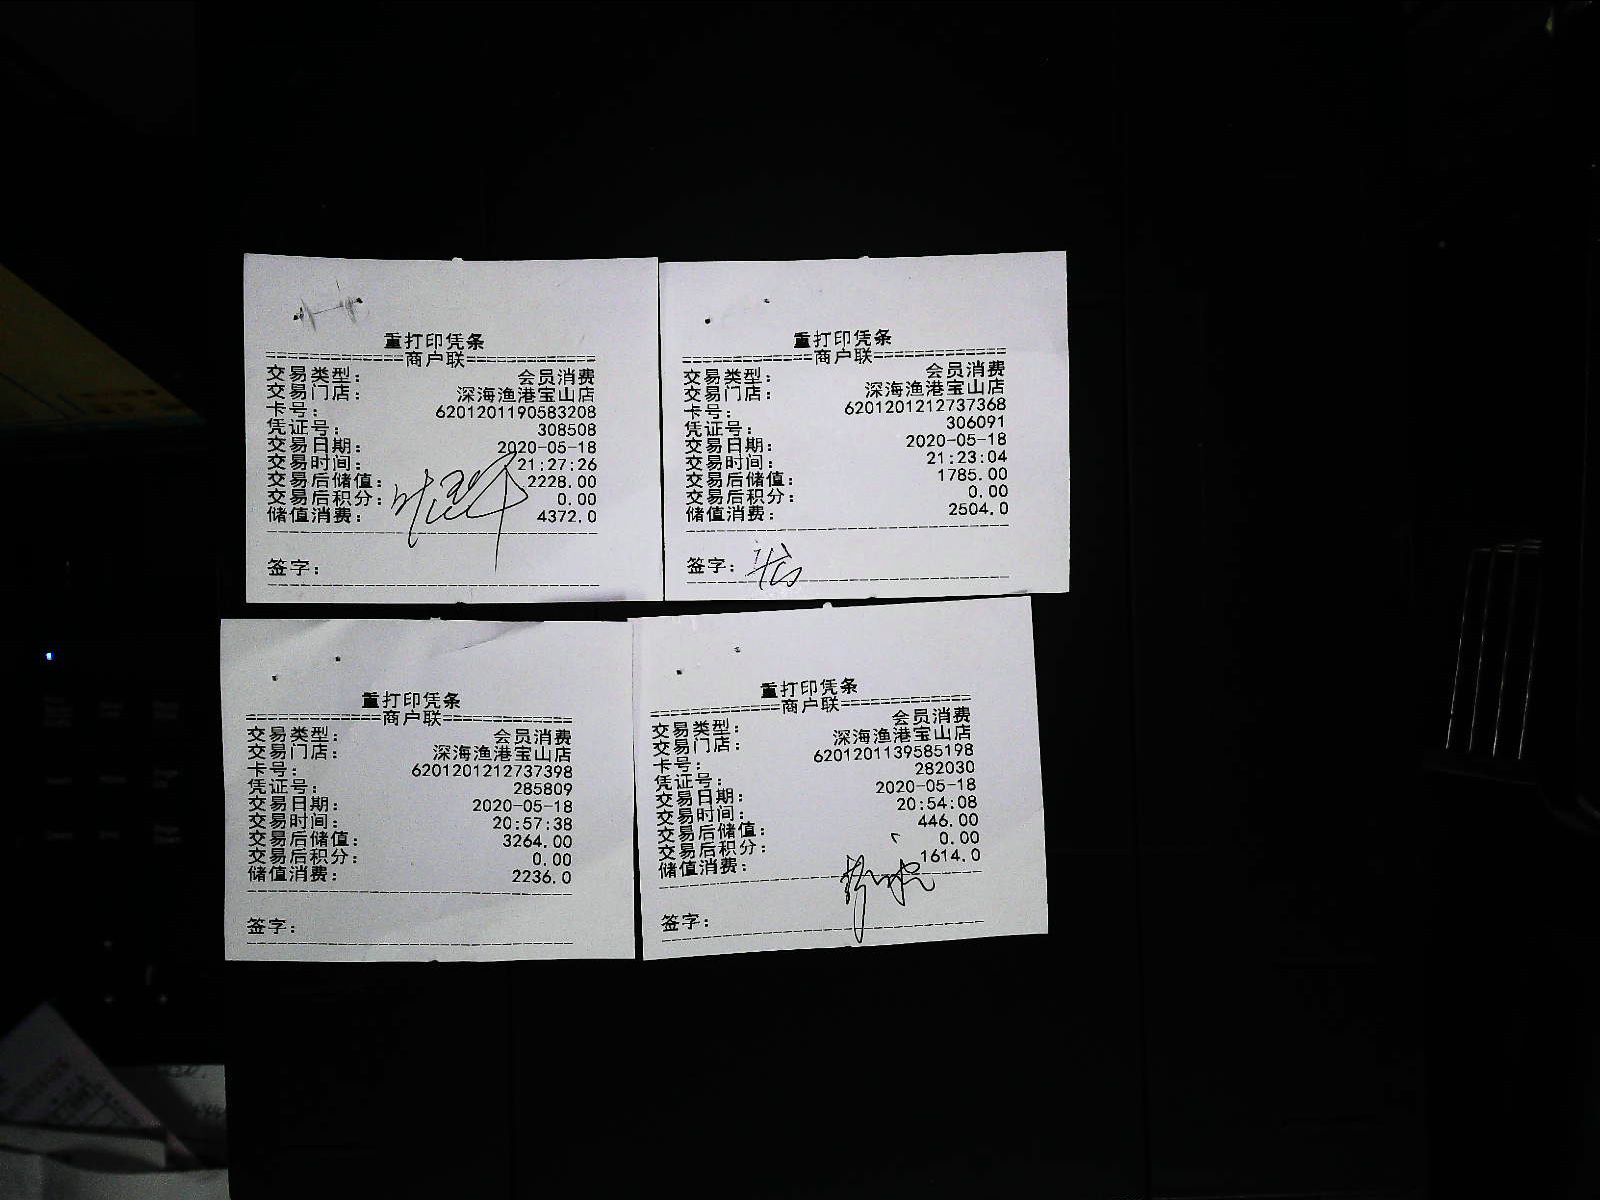 重打印凭条
==============商户联==============
交易类型: 会员消费
交易门店: 深海渔港宝山店
卡号: 6201201190583208
凭证号: 308508
交易日期: 2020-05-18
交易时间: 21:27:26
交易后储值: 2228.00
交易后积分: 0.00
储值消费: 4372.0
签字:
重打印凭条
==============商户联==============
交易类型: 会员消费
交易门店: 深海渔港宝山店
卡号: 6201201212737368
凭证号: 306091
交易日期: 2020-05-18
交易时间: 21:23:04
交易后储值: 1785.00
交易后积分: 0.00
储值消费: 2504.0
签字:
重打印凭条
==============商户联==============
交易类型: 会员消费
交易门店: 深海渔港宝山店
卡号: 6201201212737398
凭证号: 285809
交易日期: 2020-05-18
交易时间: 20:57:38
交易后储值: 3264.00
交易后积分: 0.00
储值消费: 2236.0
签字:
重打印凭条
==============商户联==============
交易类型: 会员消费
交易门店: 深海渔港宝山店
卡号: 6201201139585198
凭证号: 282030
交易日期: 2020-05-18
交易时间: 20:54:08
交易后储值: 446.00
交易后积分: 0.00
储值消费: 1614.0
签字: